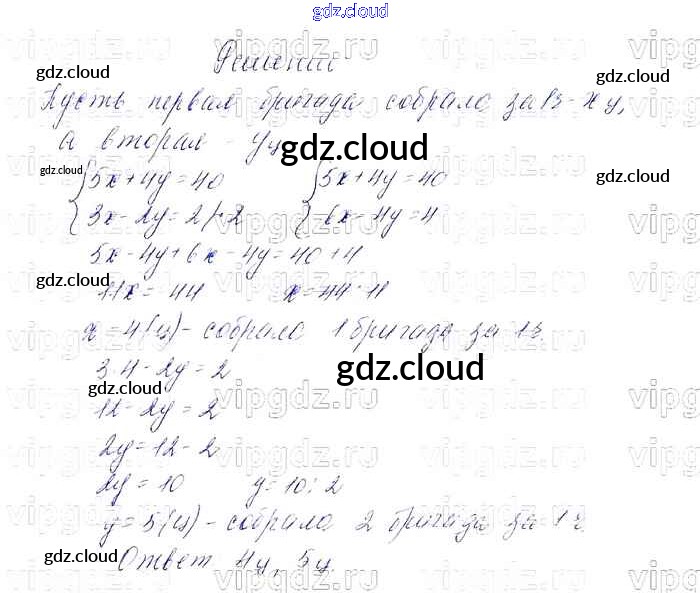 gdz.cloud
Решение
Пусть первая бригада собрала за 1 ч - x ц,
а вторая - y ц
{5x+4y=40 {5x+4y=40
{3x-2y=2 |·2 {6x-4y=4
5x-4y+6x-4y=40+4
11x=44 x=44:11
x=4(ц)-собрала 1 бригада за 1 ч.
3·4-2y=2
12-2y=2
2y=12-2
2y=10 y=10:2
y=5(ц)-собрала 2 бригада за 1 ч.
Ответ 4ц, 5ц.
gdz.cloud
gdz.cloud
gdz.cloud
gdz.cloud
gdz.cloud
gdz.cloud
gdz.cloud
gdz.cloud
gdz.cloud
gdz.cloud
gdz.cloud
vipgdz.ru